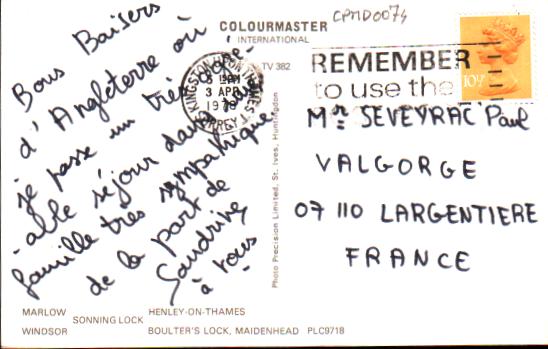 COLOURMASTER
INTERNATIONAL
CPMD0074
TV 382
Bons Baisers
d'Angleterre où
je passe un très agré
-able séjour dans
famille très sympathique
de la part de
Sandrine
à vous
KINGSTON UPON THAMES
3 APR
1978
SURREY
REMEMBER
to use the
10P
Mr SEVEYRAC Paul
VALGORGE
07 110 LARGENTIERE
FRANCE
Photo Precision Limited, St. Ives, Huntingdon
MARLOW HENLEY-ON-THAMES
SONNING LOCK
WINDSOR BOULTER'S LOCK, MAIDENHEAD PLC9718